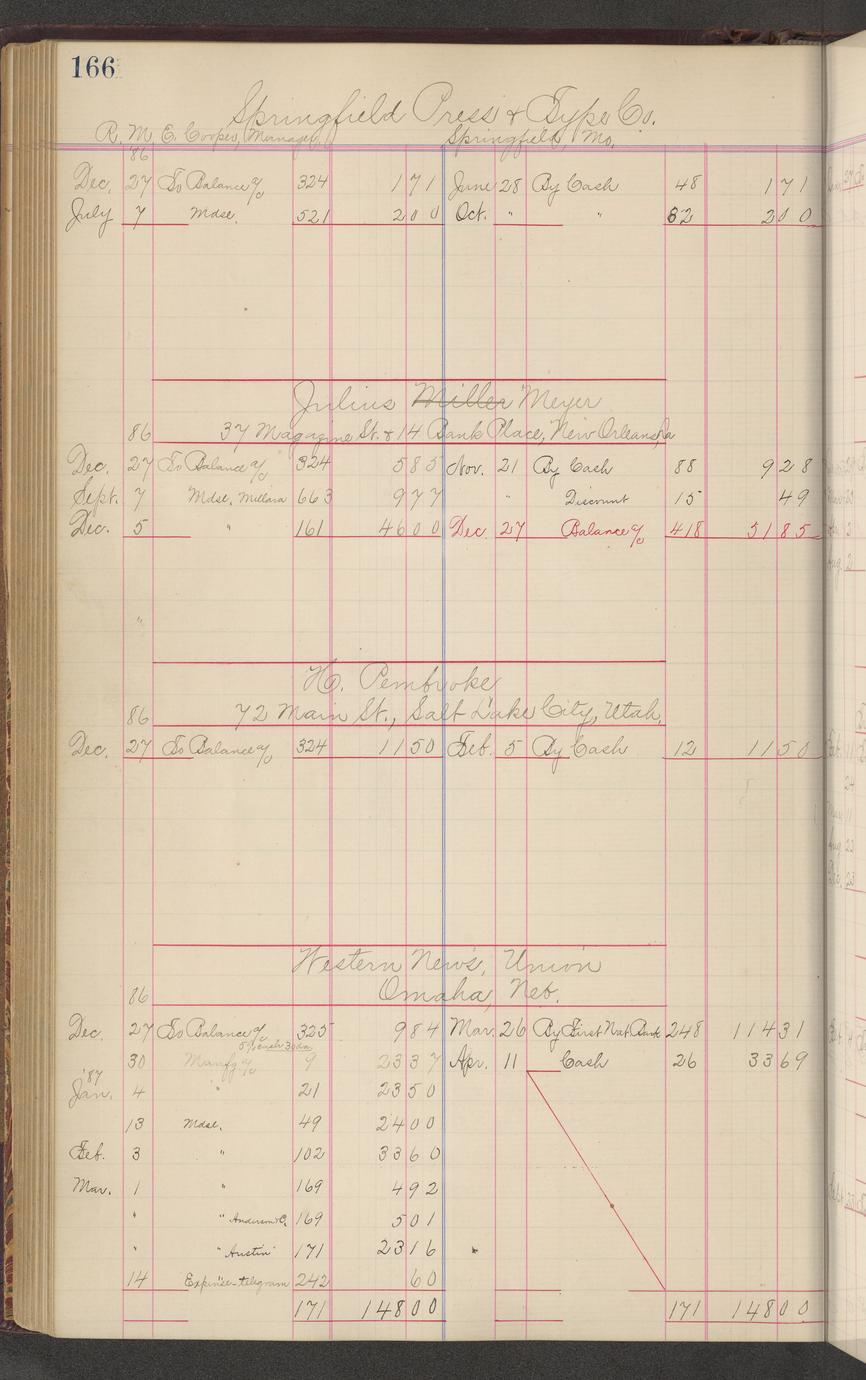 166
Springfield Press & Type Co.
R. M. E. Cooper, Manager, Springfield, Mo.
'86
Dec. 27 To Balance a/c 324 171 June 28 By Cash 48 171
July 7 Mdse. 521 200 Oct. " " 82 200
Julius Miller Meyer
86 37 Magazine St. & 14 Bank Place, New Orleans, La
Dec. 27 To Balance a/c 324 585 Nov. 21 By Cash 88 928
Sept. 7 Mdse. 663 977 " Discount 15 49
Dec. 5 " 161 4600 Dec. 27 Balance a/c 418 5185
"
H. Pembroke
86 72 Main St., Salt Lake City, Utah,
Dec. 27 To Balance a/c 324 1150 Feb. 5 By Cash 12 1150
Western News, Union
86 Omaha, Neb.
Dec. 27 To Balance a/c 325 984 Mar. 26 By First Nat. Bank 248 11431
30 Manfg. a/c 9 2337 Apr. 11 Cash 26 3369
'87
Jan. 4 " 21 2350
13 Mdse. 49 2400
Feb. 3 " 102 3360
Mar. 1 " 169 492
" " Anderson 169 501
" " Austin 171 2316
14 Expense-telegram 242 60
171 14800 171 14800